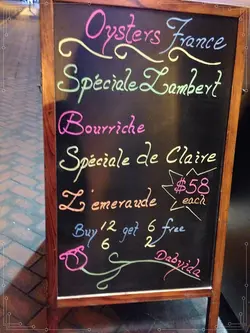 Oysters France
Spéciale Lambert
Bourriche
Spéciale de Claire
L'emeraude $58 each
Buy 12 get 6 free
6 2
Dabvida